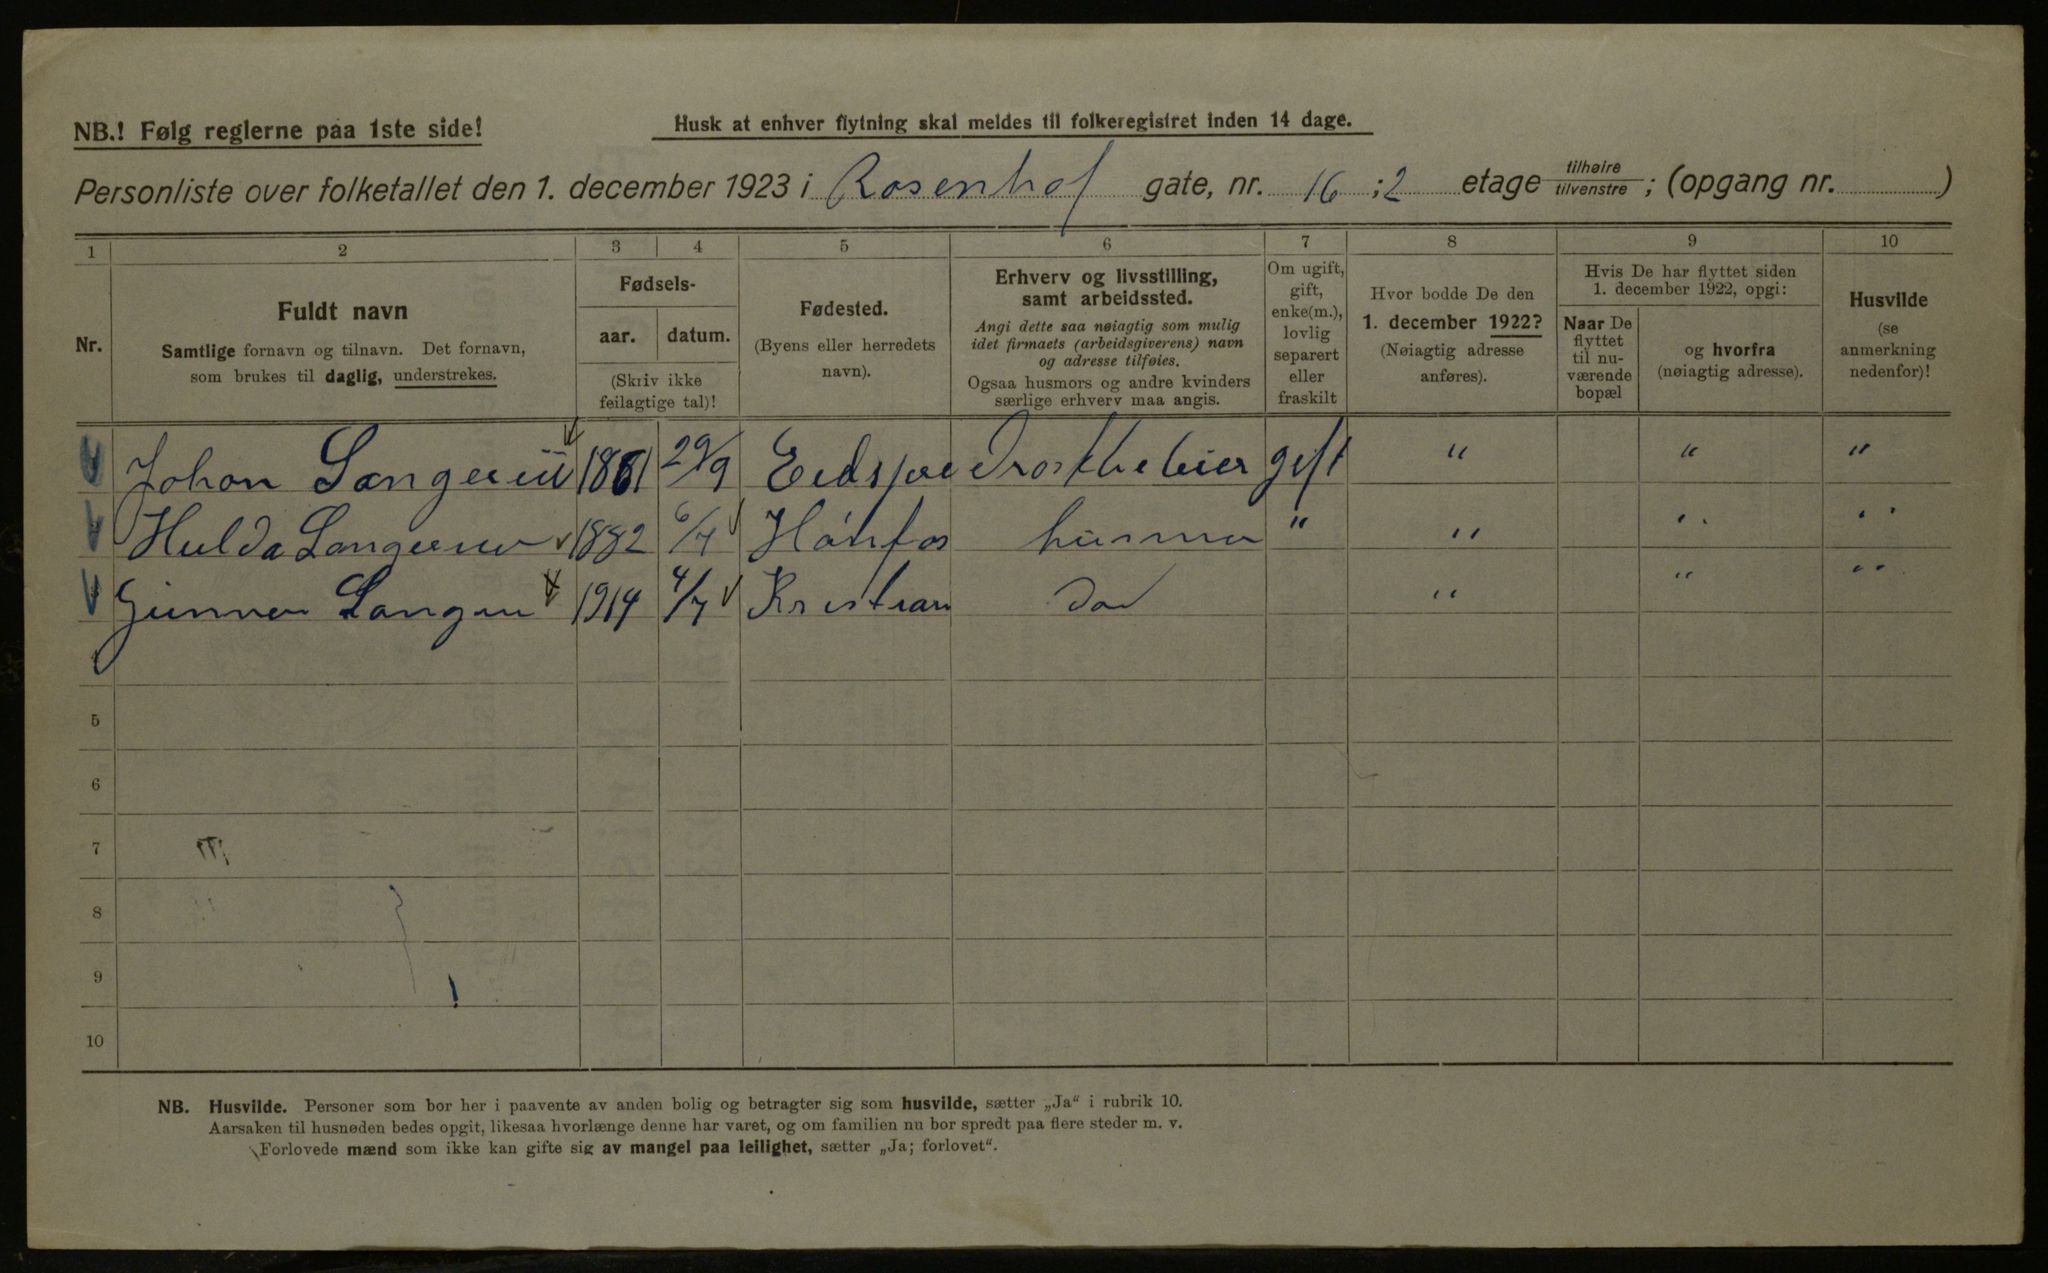 NB.! Følg reglerne paa 1ste side!
Husk at enhver flytning skal meldes til folkeregistret inden 14 dage.
Personliste over folketallet den 1. december 1923 i Rosenhof gate, nr. 16 ; 2 etage tilhøire tilvenstre ; (opgang nr. )
1 2 3 4 5 6 7 8 9 10
Nr.
Fuldt navn
Samtlige fornavn og tilnavn. Det fornavn,
som brukes til daglig, understrekes.
Fødsels-
aar. datum.
(Skriv ikke
feilagtige tal)!
Fødested.
(Byens eller herredets
navn).
Erhverv og livsstilling,
samt arbeidssted.
Angi dette saa nøiagtig som mulig
idet firmaets (arbeidsgiverens) navn
og adresse tilføies.
Ogsaa husmors og andre kvinders
særlige erhverv maa angis.
Om ugift,
gift,
enke(m.),
lovlig
separert
eller
fraskilt
Hvor bodde De den
1. december 1922?
(Nøiagtig adresse
anføres).
Hvis De har flyttet siden
1. december 1922, opgi:
Naar De
flyttet
til nu-
værende
bopæl
og hvorfra
(nøiagtig adresse).
Husvilde
(se
anmerkning
nedenfor)!
Johan 1881 29/9 gift " " "
Hulda 1882 6/7 Hønfos husmor " " " "
1914 4/7 Kristian " " "
5
6
7
8
9
10
NB. Husvilde. Personer som bor her i paavente av anden bolig og betragter sig som husvilde, sætter „Ja“ i rubrik 10.
Aarsaken til husnøden bedes opgit, likesaa hvorlænge denne har varet, og om familien nu bor spredt paa flere steder m. v.
Forlovede mænd som ikke kan gifte sig av mangel paa leilighet, sætter „Ja; forlovet“.